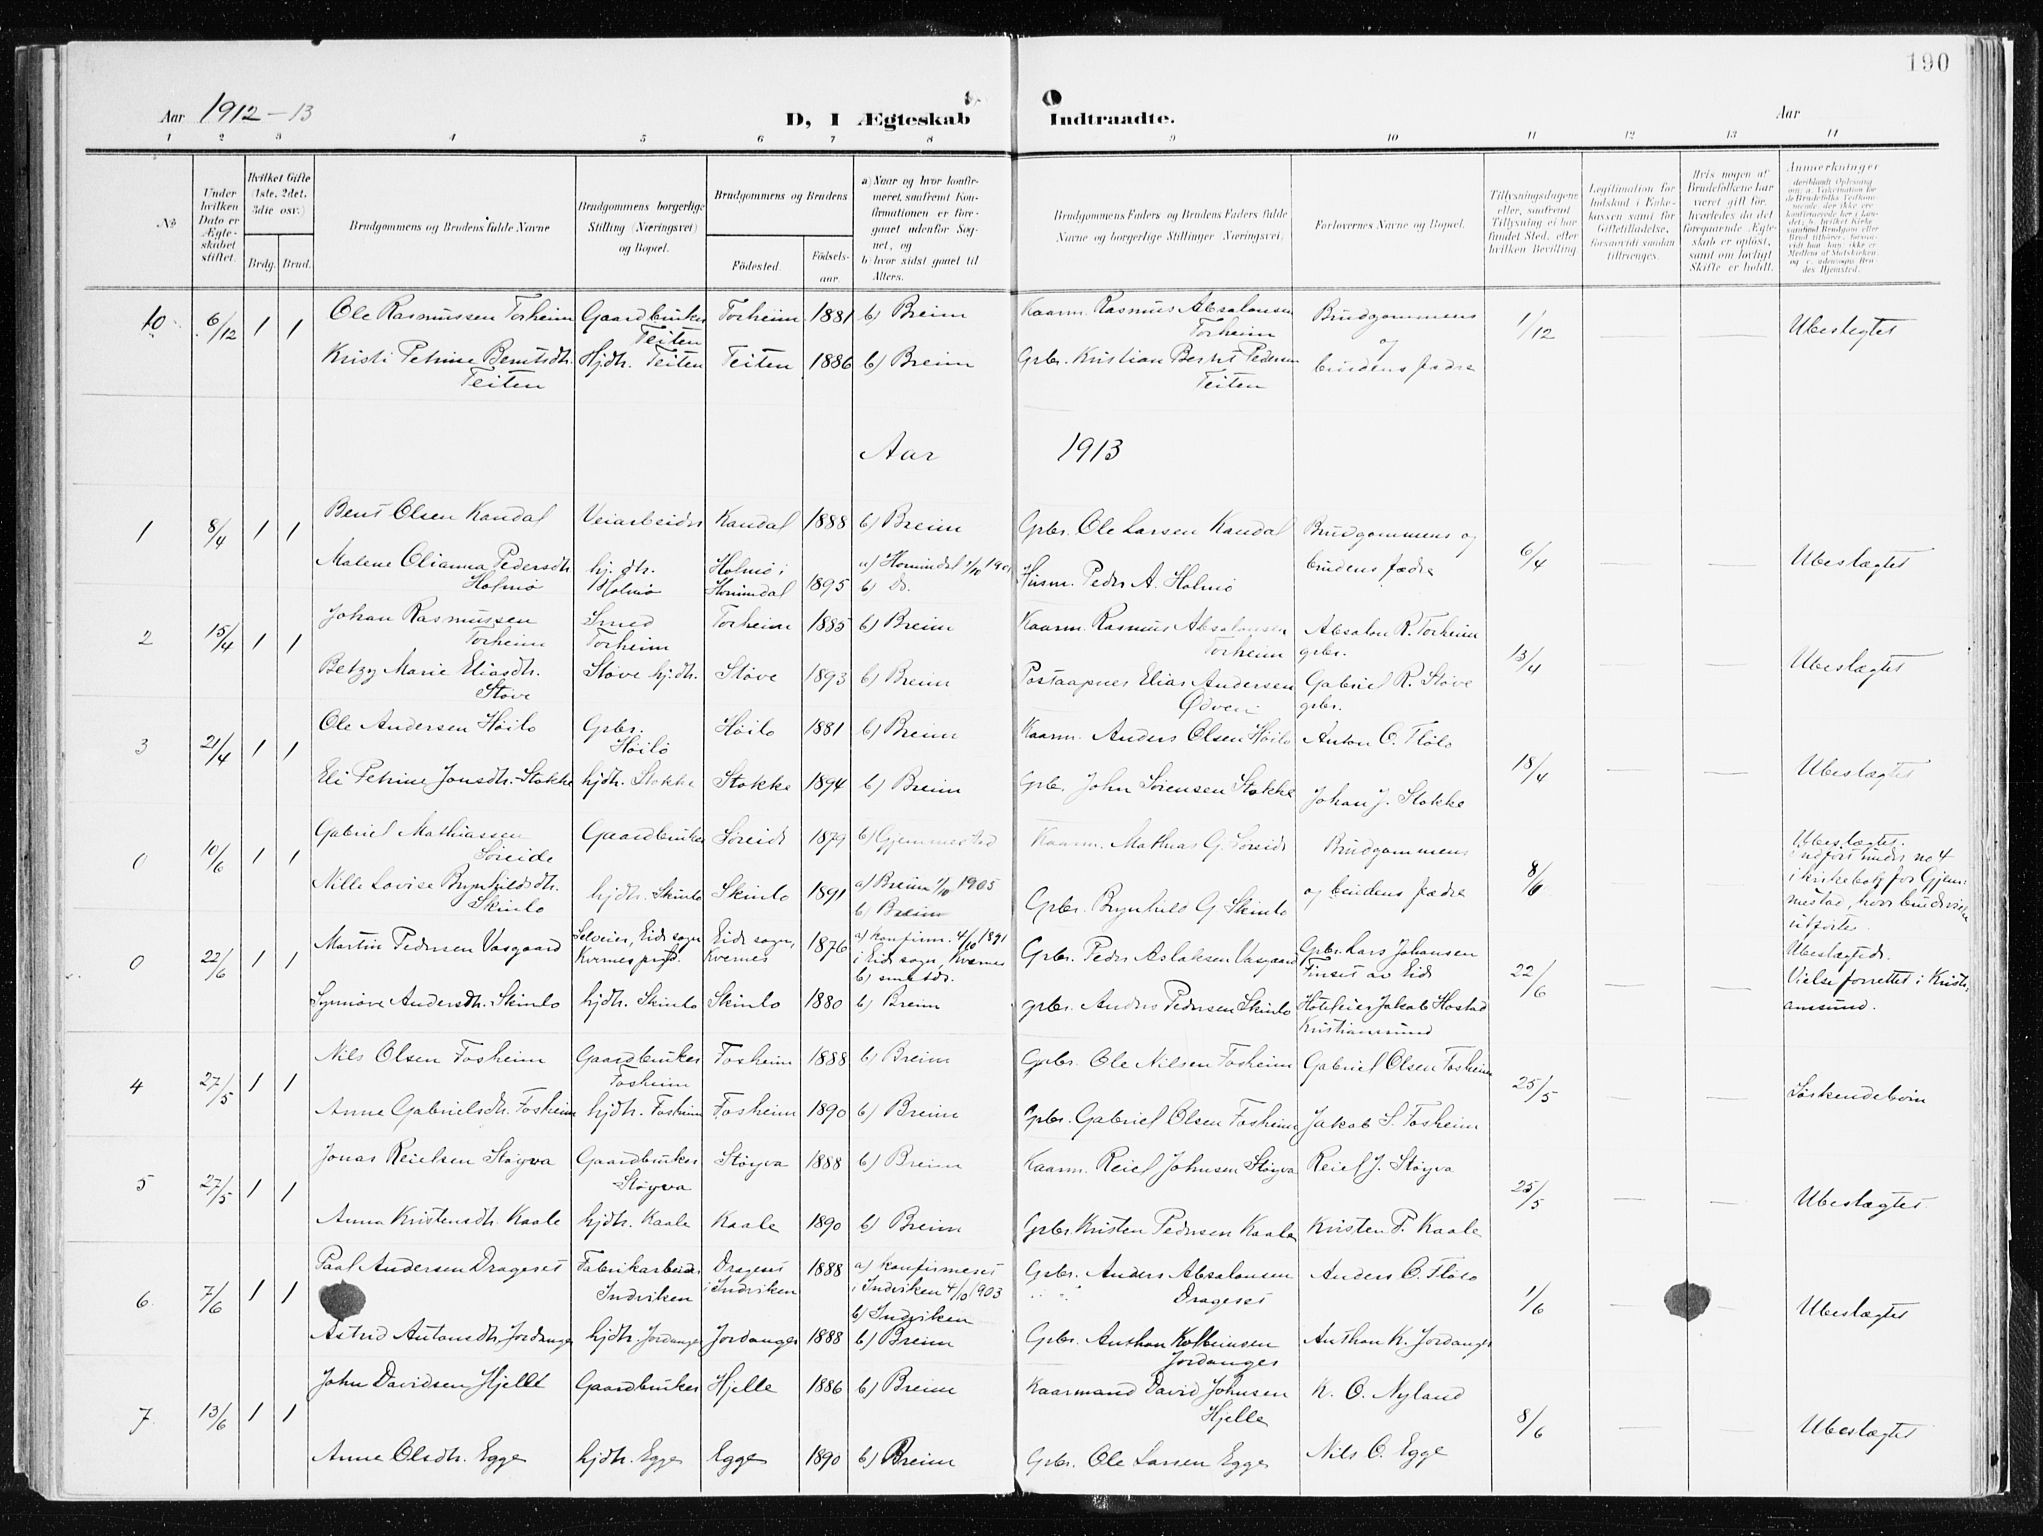 190
Aar 1912-13
D, I Ægteskab Indtraadte.
Aar
1 2 3 4 5 6 7 8 9 10 11 12 13 14
No
Under hvilken Dato er Ægteskabet stiftet.
Hvilket Gifte (1ste, 2det, 3die osv.)
Brdg. Brud.
Brudgommens og Brudens fulde Navne
Brudgommens borgerlige Stilling (Næringsvei) og Bopæl.
Brudgommens og Brudens
Fødested. Fødselsaar.
a) Naar og hvor konfirmeret, saafremt Konfirmationen er foregaaet udenfor Sognet, og
b) hvor sidst gaaet til Alters.
Brudgommens Faders og Brudens Faders fulde Navne og borgerlige Stillinger (Næringsvei)
Forlovernes Navne og Bopæl.
Tillysningsdagene eller, saafremt Tillysning ei har fundet Sted, efter hvilken Bevilling
Legitimation for Indskud i Enkekassen samt for Giftetilladelse, forsaavidt saadan tiltrænges.
Hvis nogen af Brudefolkene har været gift før, hvorledes da det foregaaende Ægteskab er opløst, samt om lovligt Skifte er holdt.
Anmerkninger
10 6/12 1 1 Ole Rasmussen Torheim Gaardbruker Teiten Torheim 1881 b) Breim Kaarm. Rasmus Absalonsen Torheim Brudgommens og 1/12 Ubeslegtet
Kristi Petrine Berntsdtr. Teiten Hjdtr. Teiten Teiten 1886 b) Breim Grbr. Kristian Bernt Pedersen Teiten brudens fædre
Aar 1913
1 8/4 1 1 Bent Olsen Kandal Veiarbeider Kandal 1888 b) Breim Grbr. Ole Larsen Kandal Brudgommens og 6/4 Ubeslægtet
Malene Olianna Pedersdtr. Holmø hj. dtr. Holmø Holmø i Hornindal 1895 b) Do. Husm. Peder A. Holmø brudens fædre
2 15/4 1 1 Johan Rasmussen Torheim Smed Torheim Torheim 1885 b) Breim Kaarm. Rasmus Absalonsen Torheim Absalon R. Torheim grbr. 13/4 Ubeslægtet
Betzy Marie Eliasdtr. Støve Støve hj.dtr. Støve 1893 b) Breim Postaapner Elias Andersen Gabriel R. Støve grbr.
3 21/4 1 1 Ole Andersen Høilo Grbr. Høilo Høilo 1881 b) Breim Kaarm. Anders Olsen Høilo Anton O. Flølo 18/4 Ubeslægtet
Eli Petrine Jonsdtr. Stokke hjdtr. Stokke Stokke 1894 b) Breim Grbr. John Sørensen Stokke Johan J. Stokke
0 10/6 1 1 Gabriel Mathiassen Søreide Gaardbruker Søreide 1879 b) Gjemmestad Kaarm. Mathias G. Søreide Brudgommens 8/6 Ubeslægtet. Indført under no 4 i kirkebok for Gjemmestad, hvor brudevielse utførtes.
Nille Lovise Brynhildsdtr. Skinlo hjdtr. Skinlo Skinlo 1891 a) Breim 1/10 1905 b) Breim Grbr. Brynhild G. Skinlo og brudens fædre
0 22/6 1 1 Martin Pedersen Vasgaard Selveier, Eide sogn, Kvernes prgj. Eide sogn, Kvernes 1876 a) konfirm. 4/10 1891 i Eide sogn, Kvernes b) smstds. Grbr. Peder Aslaksen Vasgaard Grbr. Lars Johansen Finset av Eide 22/6 Ubeslægtede. Vielse forrettet i Kristiansund.
Synnøve Andersdtr. Skinlo hjdtr. Skinlo Skinlo 1880 b) Breim grbr. Anders Pedersen Skinlo Hoteleier Jakob Hostad Kristiansund
4 27/5 1 1 Nils Olsen Fosheim Gaardbruker Fosheim Fosheim 1888 b) Breim Grbr. Ole Nilsen Fosheim Gabriel Olsen Fosheim 25/5 Søskendebørn
Anne Gabrielsdtr. Fosheim hjdtr. Fosheim Fosheim 1890 b) Breim Grbr. Gabriel Olsen Fosheim Jakob S. Fosheim
5 27/5 1 1 Jonas Reielsen Støyva Gaardbruker Støyva Støyva 1888 b) Breim Kaarm. Reiel Johnsen Støyva Reiel J. Støyva 25/5 Ubeslægtet
Anna Kristensdtr. Kaale hjdtr. Kaale Kaale 1890 b) Breim Grbr. Kristen Pedersen Kaale Kristen P. Kaale
6 7/6 1 1 Paal Andersen Drageset Fabrikarbeider Indviken Drageset i Indviken 1888 a) konfirmeret i Indviken 4/10 1903 b) Indviken Grbr. Anders Absalonsen Drageset Anders O. Flølo 1/6 Ubeslægtet
Astrid Antonsdtr. Jordanger hjdtr. Jordanger Jordanger 1888 b) Breim Grbr. Anthon Kolbeinsen Jordanger Anthon K. Jordanger
7 13/6 1 1 John Davidsen Hjelle Gaardbruker Hjelle 1886 b) Breim Kaarmand David Johnsen Hjelle K. O. Nyland 8/6 Ubeslægtet
Anne Olsdtr. Egge hjdtr. Egge Egge 1890 b) Breim Grbr. Ole Larsen Egge Nils O. Egge